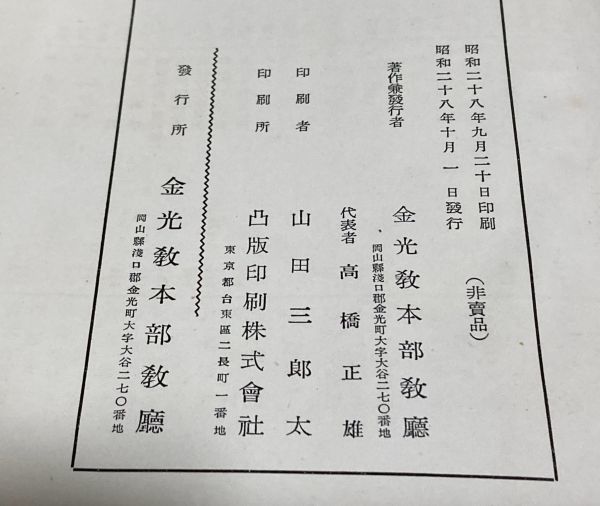 昭和二十八年九月二十日印刷
昭和二十八年十月一日發行
(非賣品)
著作兼發行者
金光敎本部敎廳
岡山縣淺口郡金光町大字大谷二七〇番地
代表者 高橋正雄
印刷者 山田三郎太
印刷所 凸版印刷株式會社
東京都台東區二長町一番地
發行所 金光敎本部敎廳
岡山縣淺口郡金光町大字大谷二七〇番地